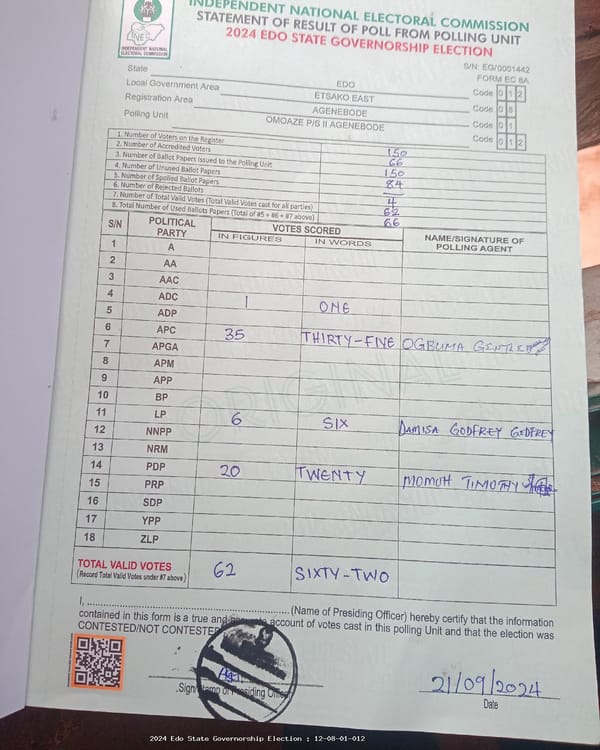 INDEPENDENT NATIONAL ELECTORAL COMMISSION
STATEMENT OF RESULT OF POLL FROM POLLING UNIT
2024 EDO STATE GOVERNORSHIP ELECTION
INEC
INDEPENDENT NATIONAL
ELECTORAL COMMISSION
S/N: EG/0001442
FORM EC 8A
State EDO Code 1 2
Local Government Area ETSAKO EAST Code 0 8
Registration Area AGENEBODE Code 0 1
Polling Unit OMOAZE P/S II AGENEBODE Code 0 1 2
1. Number of Voters on the Register 150
2. Number of Accredited Voters 66
3. Number of Ballot Papers Issued to the Polling Unit 150
4. Number of Unused Ballot Papers 84
5. Number of Spoiled Ballot Papers —
6. Number of Rejected Ballots 4
7. Number of Total Valid Votes (Total Valid Votes cast for all parties) 62
8. Total Number of Used Ballots Papers (Total of #5 + #6 + #7 above) 66
S/N POLITICAL PARTY VOTES SCORED NAME/SIGNATURE OF POLLING AGENT
IN FIGURES IN WORDS
1 A
2 AA
3 AAC
4 ADC 1 ONE
5 ADP
6 APC 35 THIRTY-FIVE OGBUMA GENTLE
7 APGA
8 APM
9 APP
10 BP
11 LP 6 SIX DAMISA GODFREY GODFREY
12 NNPP
13 NRM
14 PDP 20 TWENTY MOMOH TIMOTHY
15 PRP
16 SDP
17 YPP
18 ZLP
ORIGINAL
TOTAL VALID VOTES 62 SIXTY-TWO
(Record Total Valid Votes under #7 above)
I, ................................ (Name of Presiding Officer) hereby certify that the information
contained in this form is a true and account of votes cast in this polling Unit and that the election was
CONTESTED/NOT CONTESTED
Sign/Stamp of Presiding Officer
21/09/2024
Date
2024 Edo State Governorship Election : 12-08-01-012